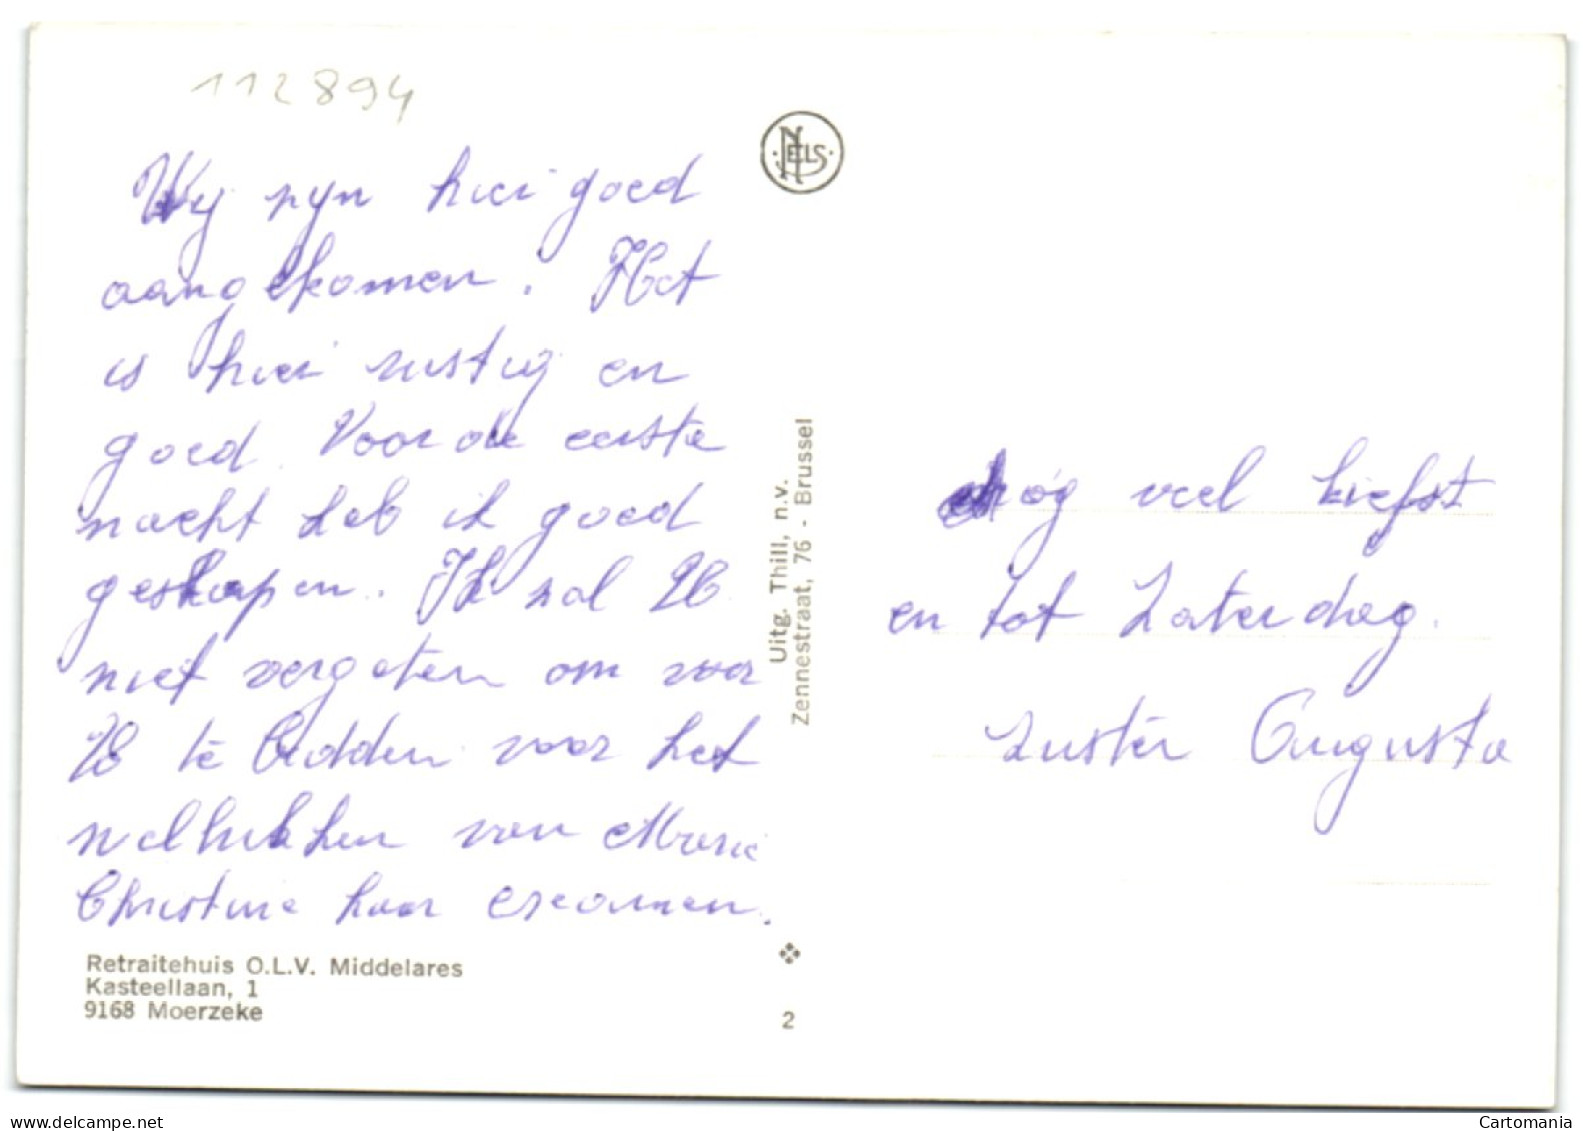 112894
Wij zijn hier goed
aangekomen. Het
is hier rustig en
goed. Voor de eerste
nacht heb ik goed
geslapen. Ik zal
niet vergeten om voor
te bidden voor het
wellukken van Marie
Christine haar examen.
Retraitehuis O.L.V. Middelares
Kasteellaan, 1
9168 Moerzeke
NELS
Uitg. Thill, n.v.
Zennestraat, 76 - Brussel
2
nog veel liefst
en tot Zaterdag.
Zuster Augusta
Cartomania